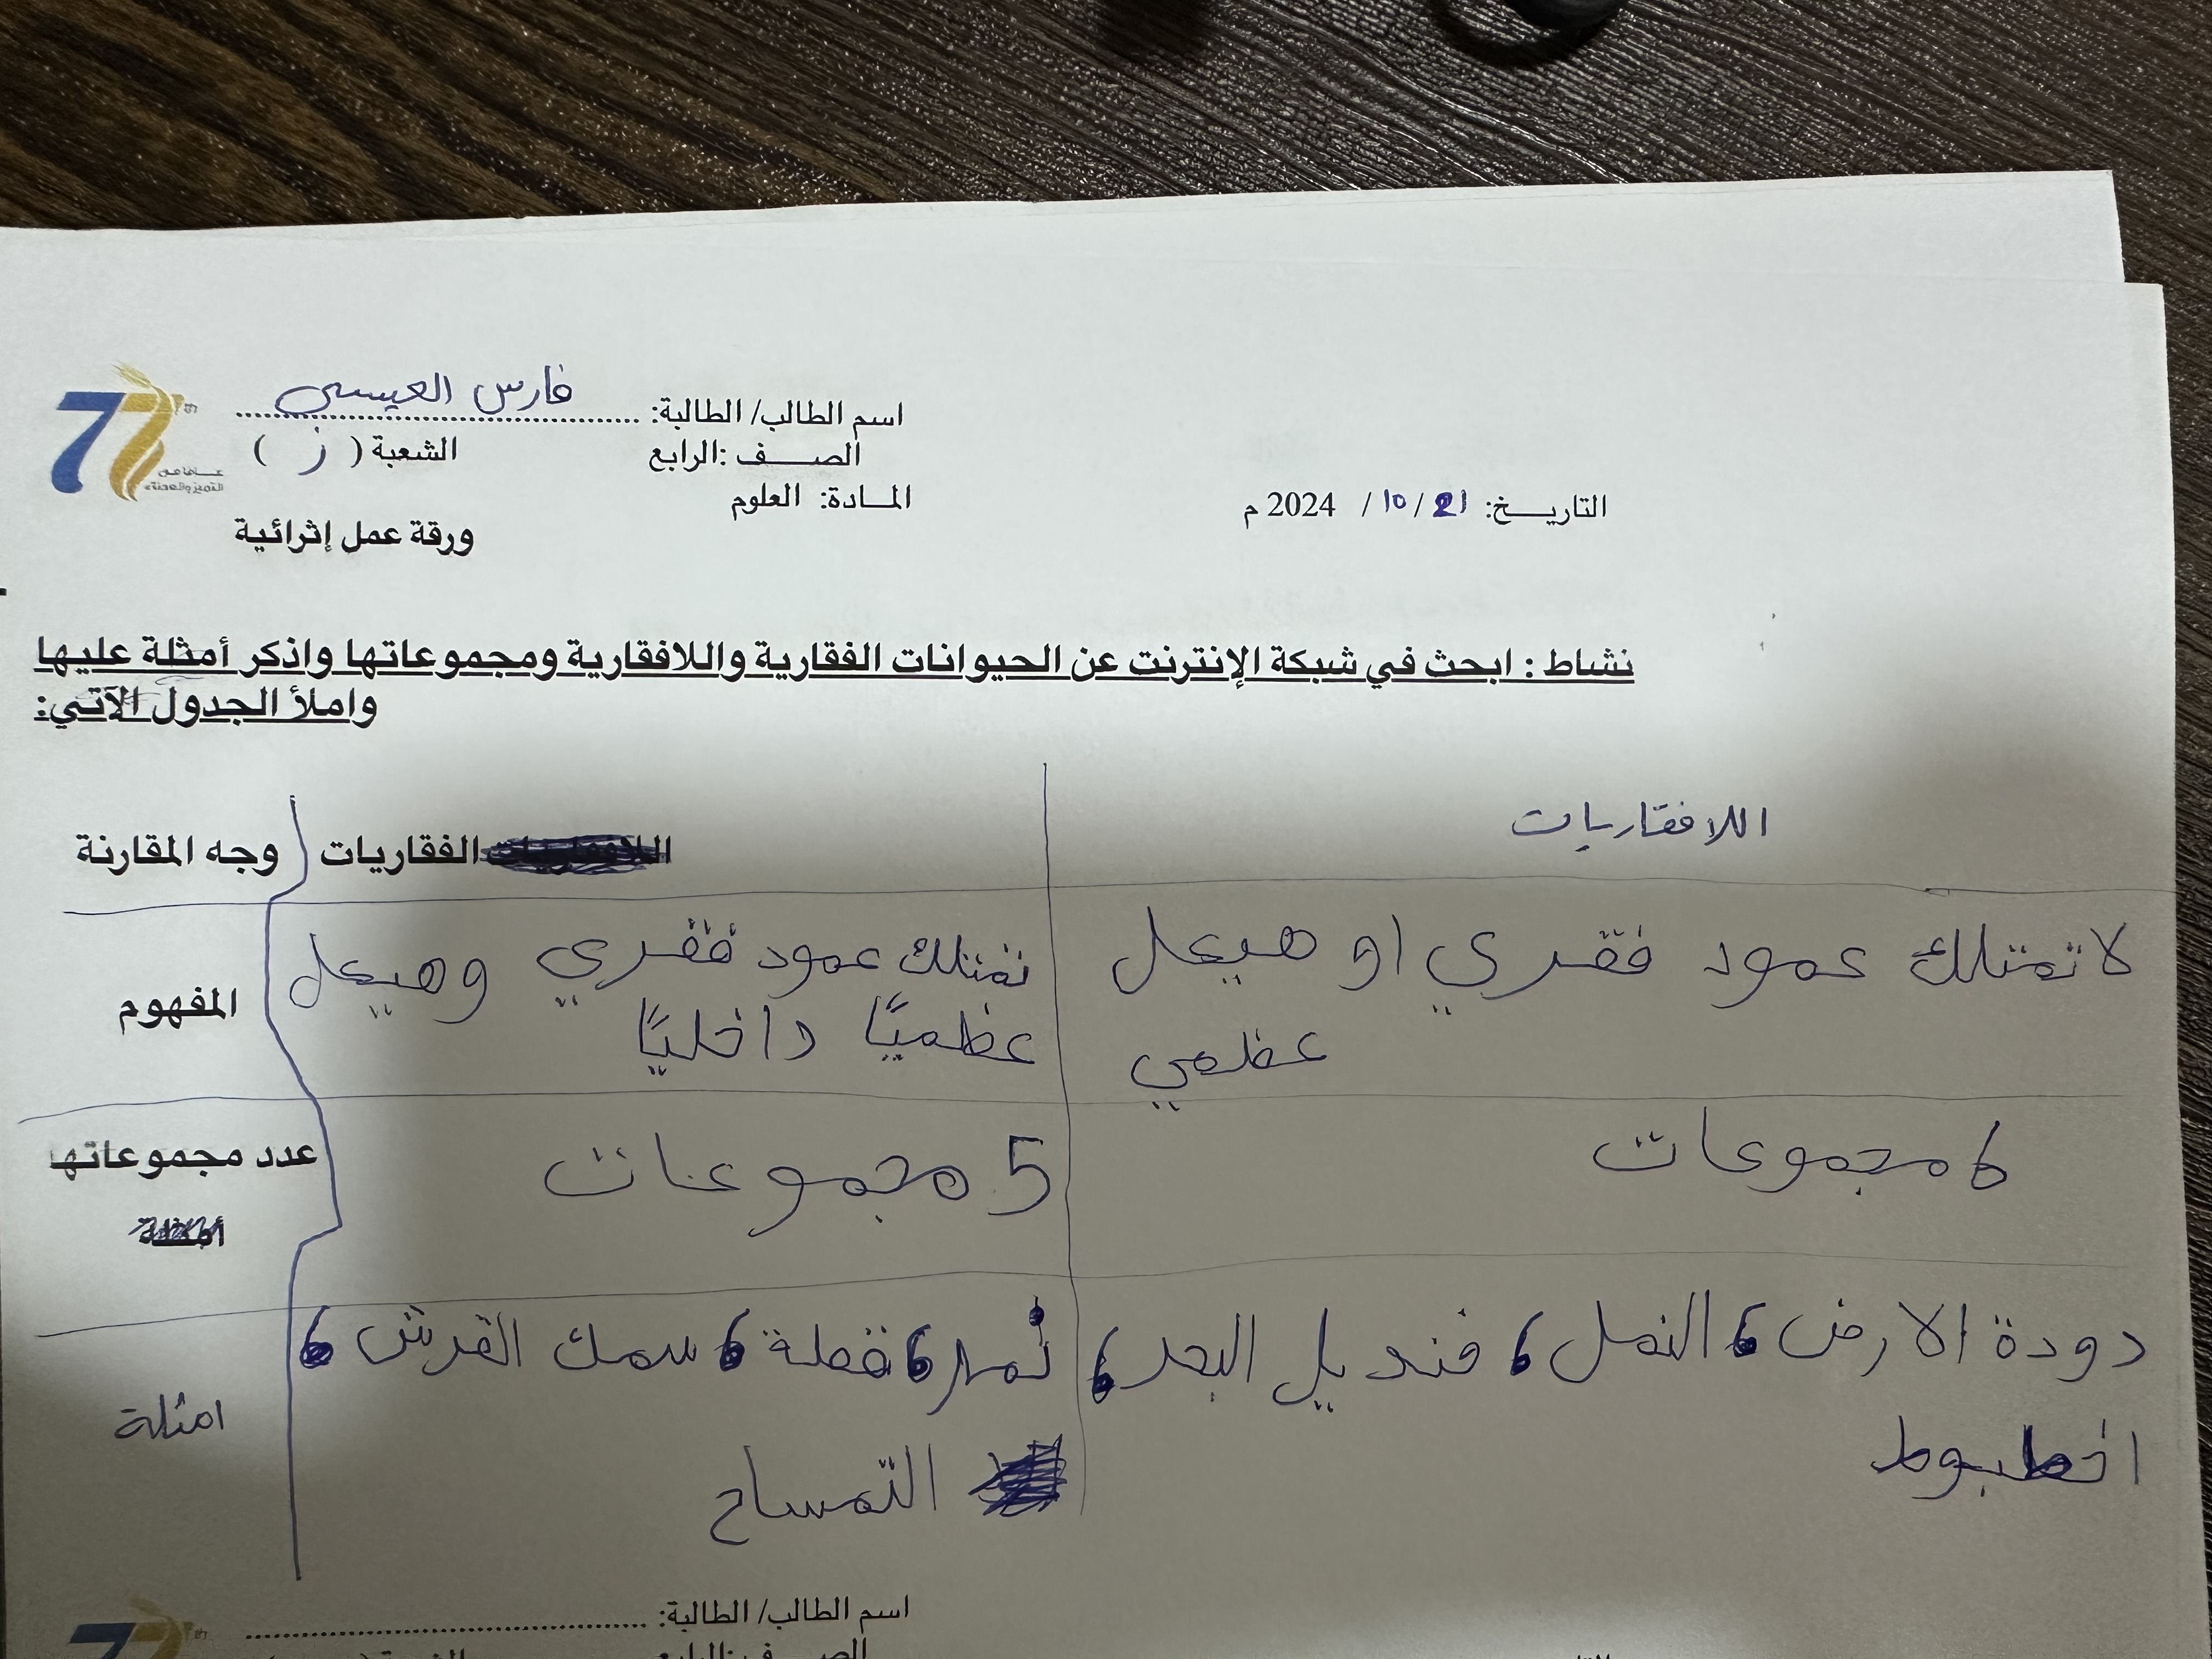 اسم الطالب/ الطالبة: فارس العيسى
الصف: الرابع الشعبة ( ز )
المادة: العلوم
التاريخ: 21/ 10/ 2024 م
ورقة عمل إثرائية
77
عاما من
التميز والعطاء
نشاط : ابحث في شبكة الإنترنت عن الحيوانات الفقارية واللافقارية ومجموعاتها واذكر أمثلة عليها
واملأ الجدول الآتي:
اللافقاريات
الفقاريات
وجه المقارنة
لا تمتلك عمود فقري او هيكل
عظمي
تمتلك عمود فقري وهيكل
عظميًا داخليًا
المفهوم
6 مجموعات
5 مجموعات
عدد مجموعاتها
دودة الارض، النمل، قنديل البحر،
اخطبوط
نمر، قطة، سمك القرش،
التمساح
امثلة
اسم الطالب/ الطالبة:
77